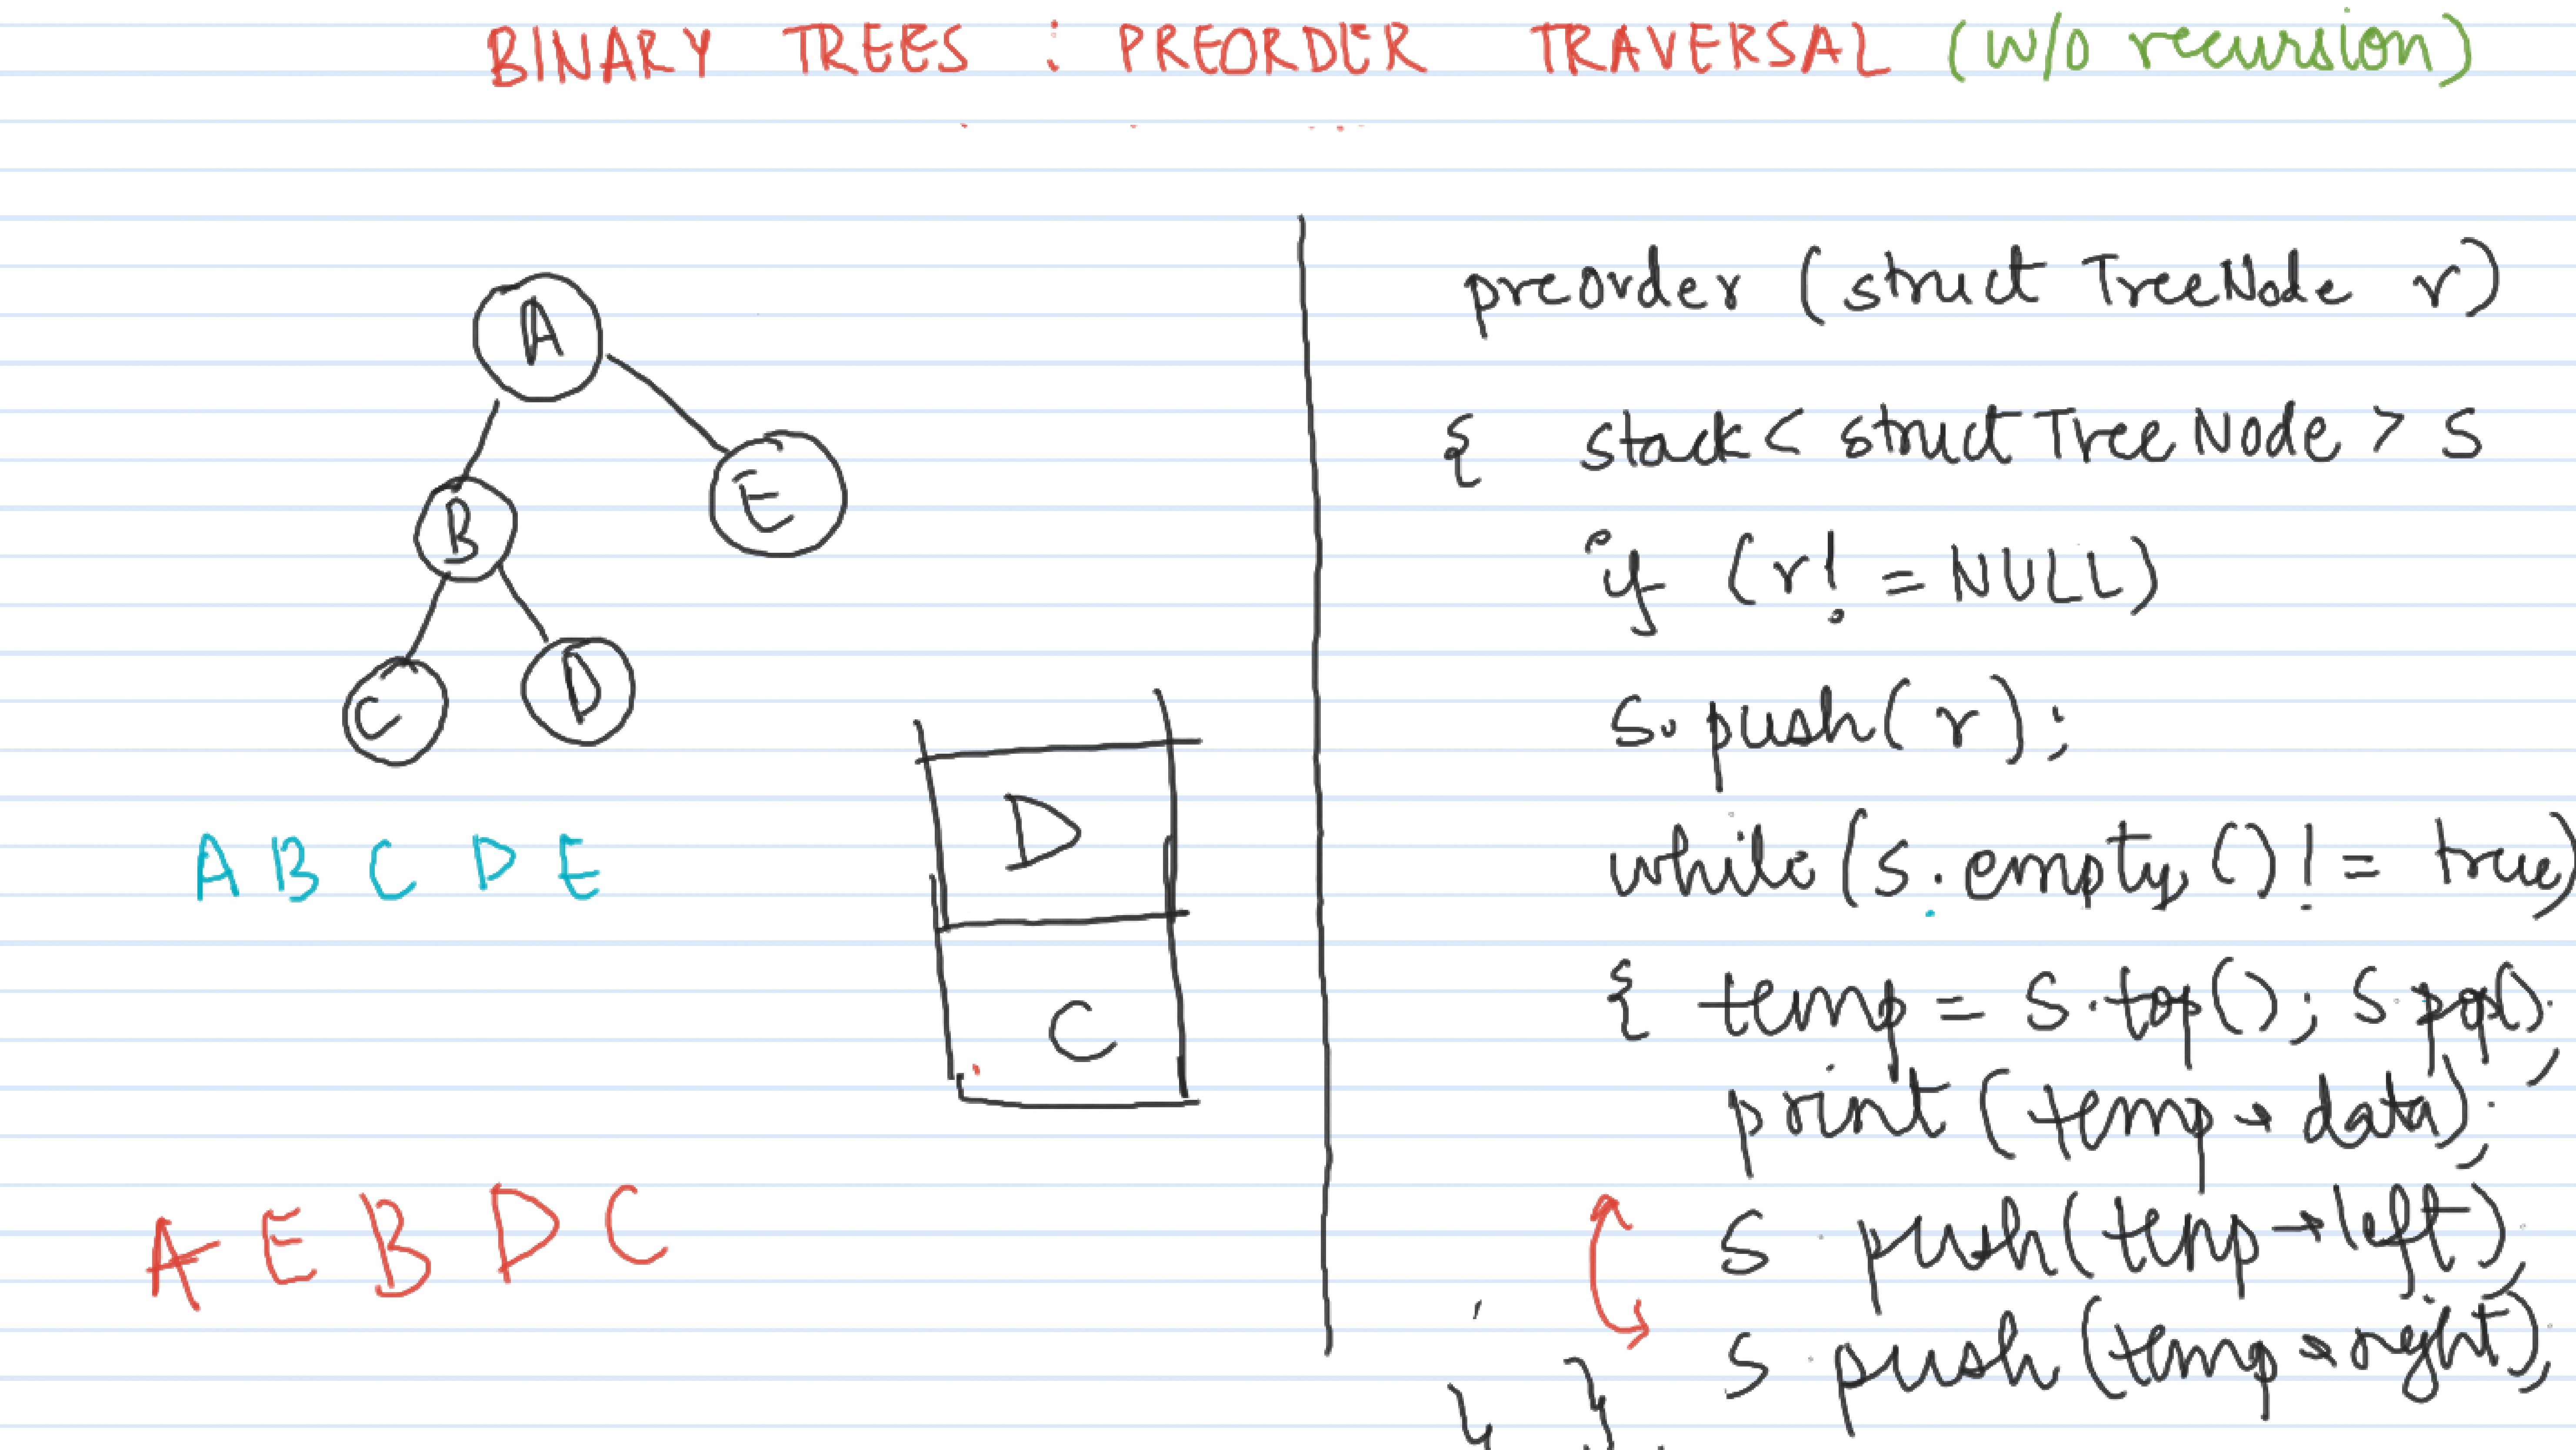 BINARY TREES : PREORDER TRAVERSAL (w/o recursion)
A
B
E
C
D
A B C D E
D
C
A E B D C
preorder (struct TreeNode r)
{ stack< struct TreeNode > s
if (r! = NULL)
s.push(r);
while(s.empty()! = true)
{ temp = s.top(); s.pop();
print(temp→data);
s.push(temp→left);
s.push(temp→right);
} }